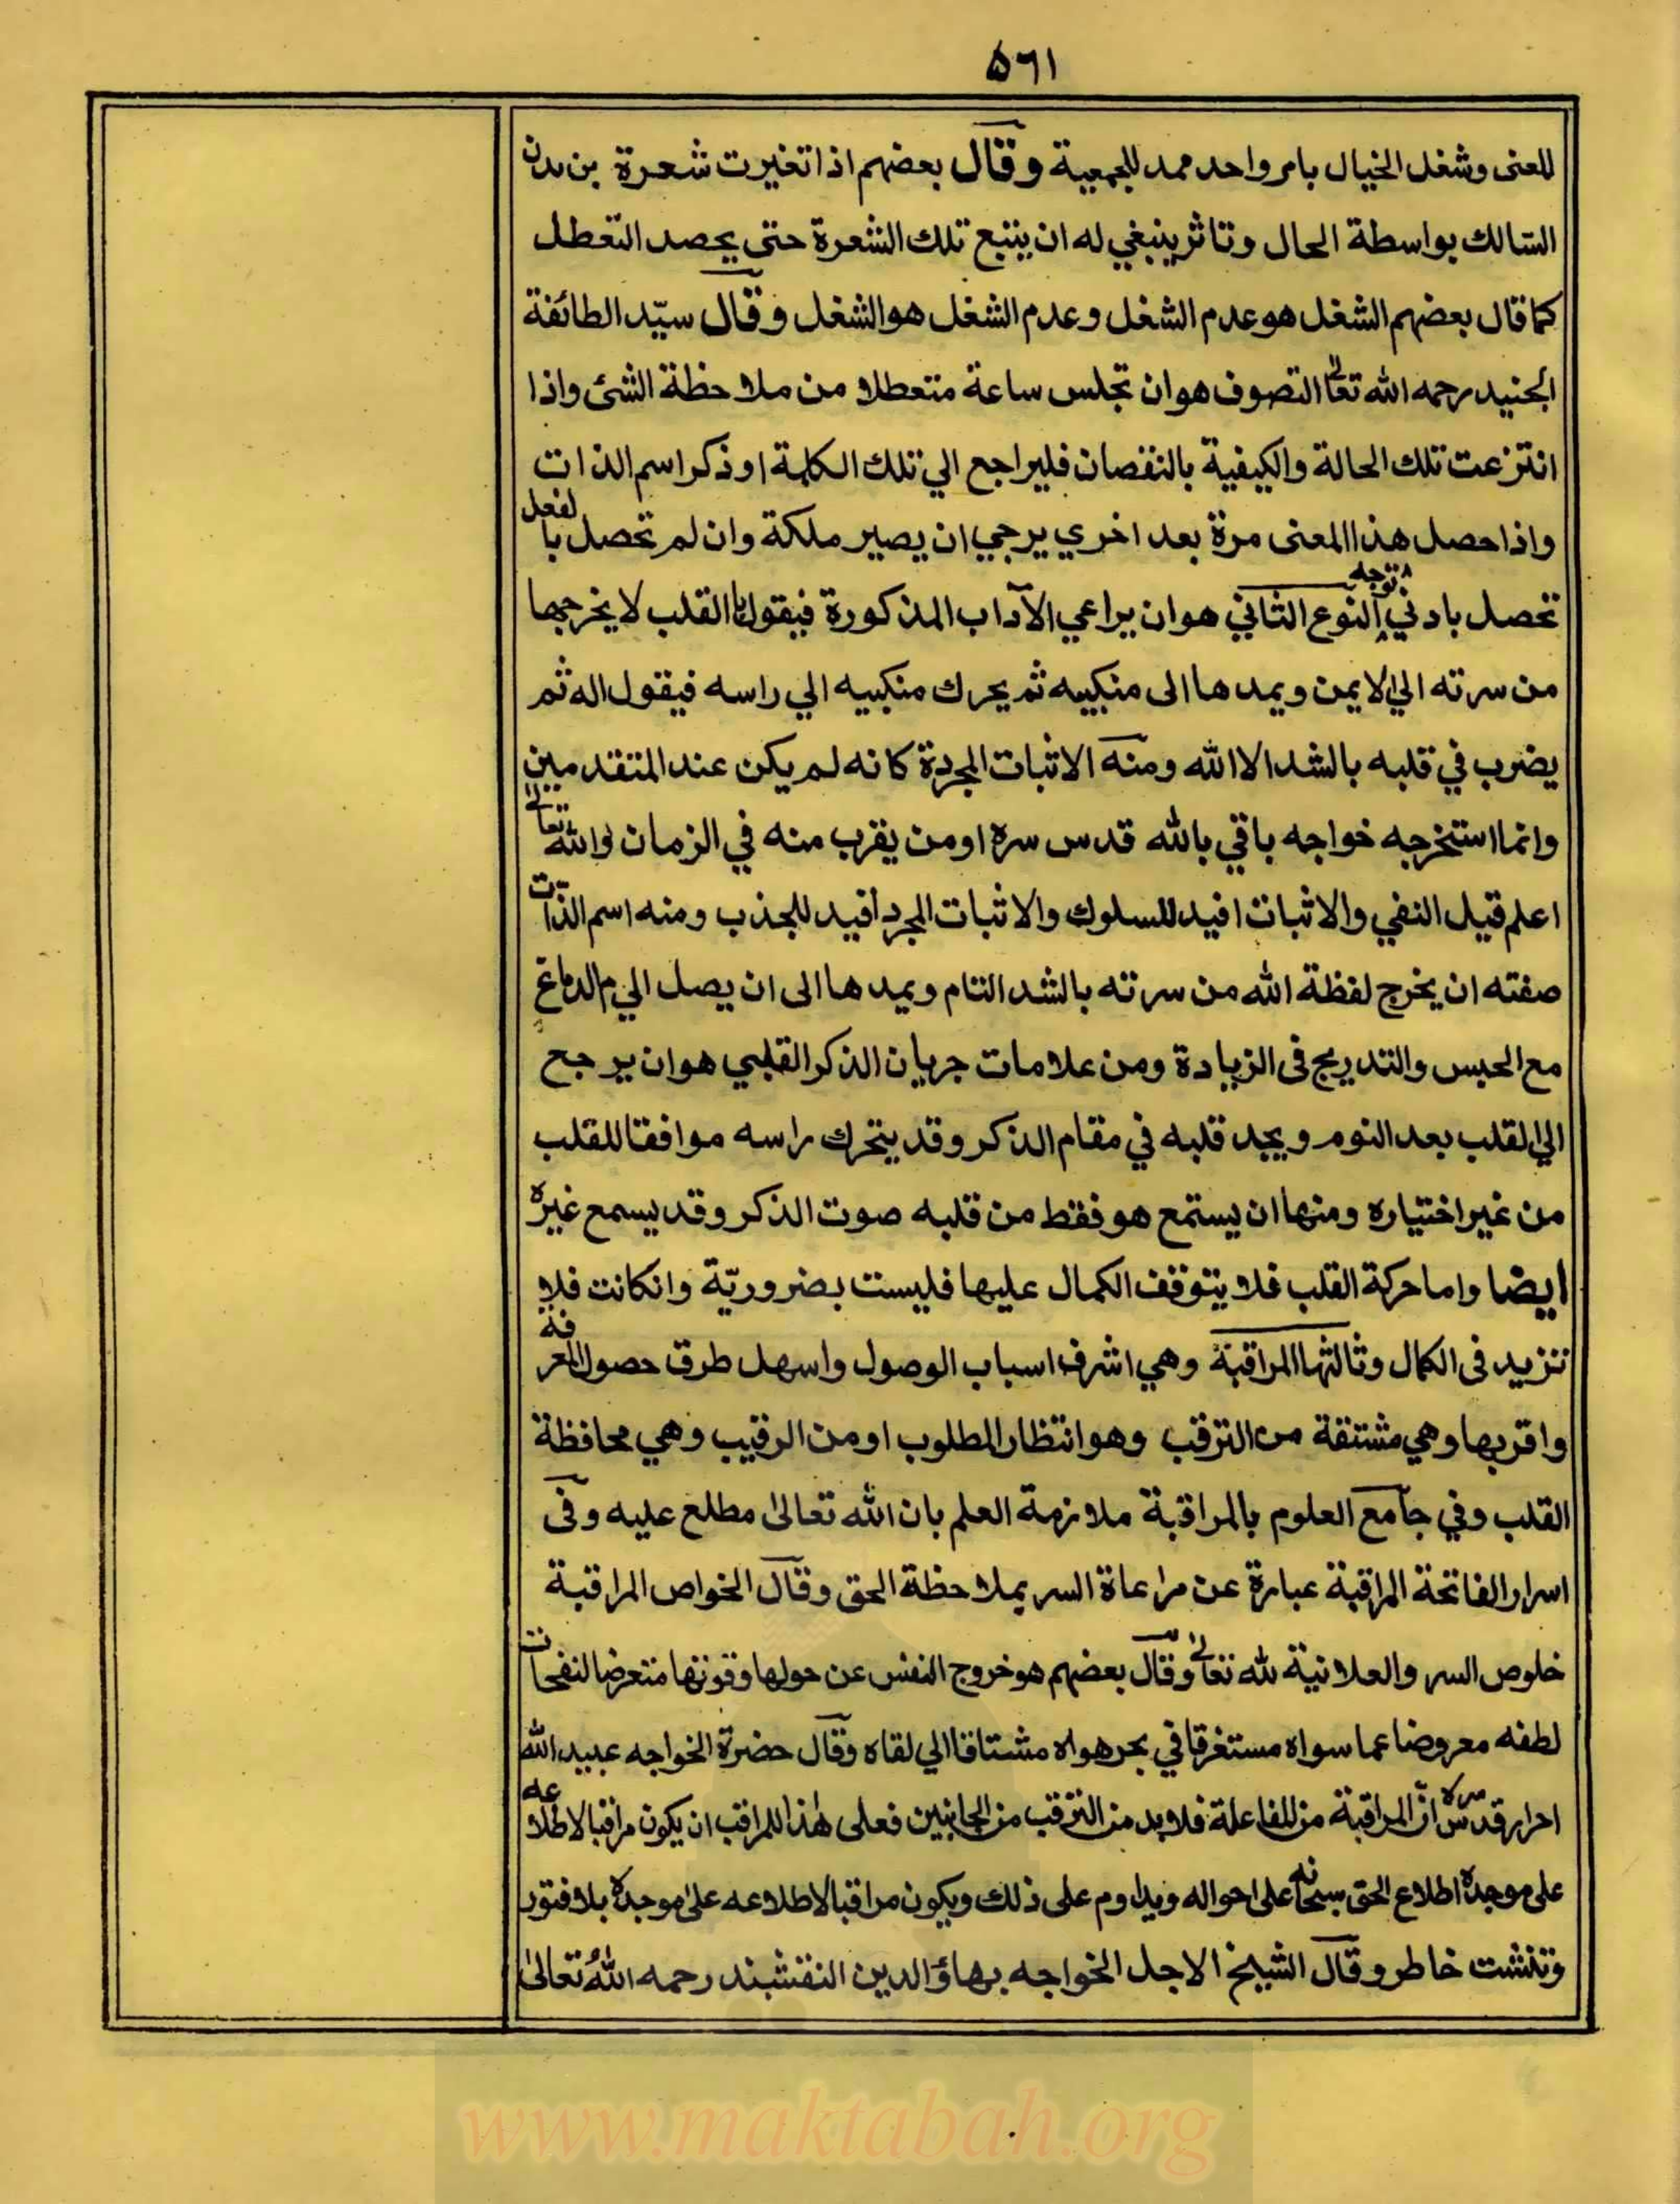 ٥٦١
للعنى وشغل الخيال بامر واحد ممد للجمعية وقال بعضهم اذا تغيرت شعرة من بدن
السّالك بواسطة الحال وتاثر ينبغي له ان يتبع تلك الشعرة حتى يحصد التعطل
كما قال بعضهم الشغل هو عدم الشغل وعدم الشغل هو الشغل وقال سيّد الطائفة
الجنيد رحمه الله تعالى التصوف هو ان تجلس ساعة متعطلا من ملاحظة الشئ واذا
انتزعت تلك الحالة والكيفية بالنقصان فليراجع الي تلك الكلمة او ذكر اسم الذات
واذا حصل هذا المعنى مرة بعد اخري يرجي ان يصير ملكة وان لم تحصل بالفعل
تحصل بادني توجه النوع الثاني هو ان يراعي الآداب المذكورة فيقول بالقلب لا يخرجها
من سرته الي الايمن ويمدها الى منكبيه ثم يحرك منكبيه الي راسه فيقول اله ثم
يضرب في قلبه بالشد الا الله ومنه الاثبات المجردة كانه لم يكن عند المتقدمين
وانما استخرجه خواجه باقي بالله قدس سره او من يقرب منه في الزمان والله تعالى
اعلم قيل النفي والاثبات افيد للسلوك والاثبات المجرد أفيد للجذب ومنه اسم الذّات
صفته ان يخرج لفظة الله من سرته بالشد التام ويمدها الى ان يصل الي ام الدماغ
مع الحبس والتدريج فى الزيادة ومن علامات جريان الذكر القلبي هو ان يرجح
الي القلب بعد النوم ويجد قلبه في مقام الذكر وقد يتحرك راسه موافقا للقلب
من غير اختياره ومنها ان يستمع هو فقط من قلبه صوت الذكر وقد يسمع غيره
أيضا واما حركة القلب فلا يتوقف الكمال عليها فليست بضروريّة وانكانت فلا
تزيد فى الكمال وثالثها المراقبة وهي اشرف اسباب الوصول واسهل طرق حصول المعرفة
واقربها وهي مشتقة من الترقب وهو انتظار المطلوب او من الرقيب وهي محافظة
القلب وفي جامع العلوم بالمراقبة ملازمة العلم بان الله تعالىٰ مطلع عليه وفى
اسرار الفاتحة المراقبة عبارة عن مراعاة السر بملاحظة الحق وقال الخواص المراقبة
خلوص السر والعلانية لله تعالىٰ وقال بعضهم هو خروج النفس عن حولها وقوتها متعرضا لنفحات
لطفه معروضا عما سواه مستغرقا في بحر هواه مشتاقا الي لقاه وقال حضرة الخواجه عبيد الله
احرار قدس سره ان المراقبة من المفاعلة فلا بد من الترقب من الجانبين فعلى هٰذا للمراقب ان يكون مراقبا لاطلاعه
على موجده اطلاع الحق سبحانه على احواله ويداوم على ذلك ويكون مراقبا لاطلاعه على موجده بلا فتور
وتشتت خاطر وقال الشيخ الاجل الخواجه بهاؤ الدين النقشبند رحمه اللهُ تعالىٰ
www.maktabah.org